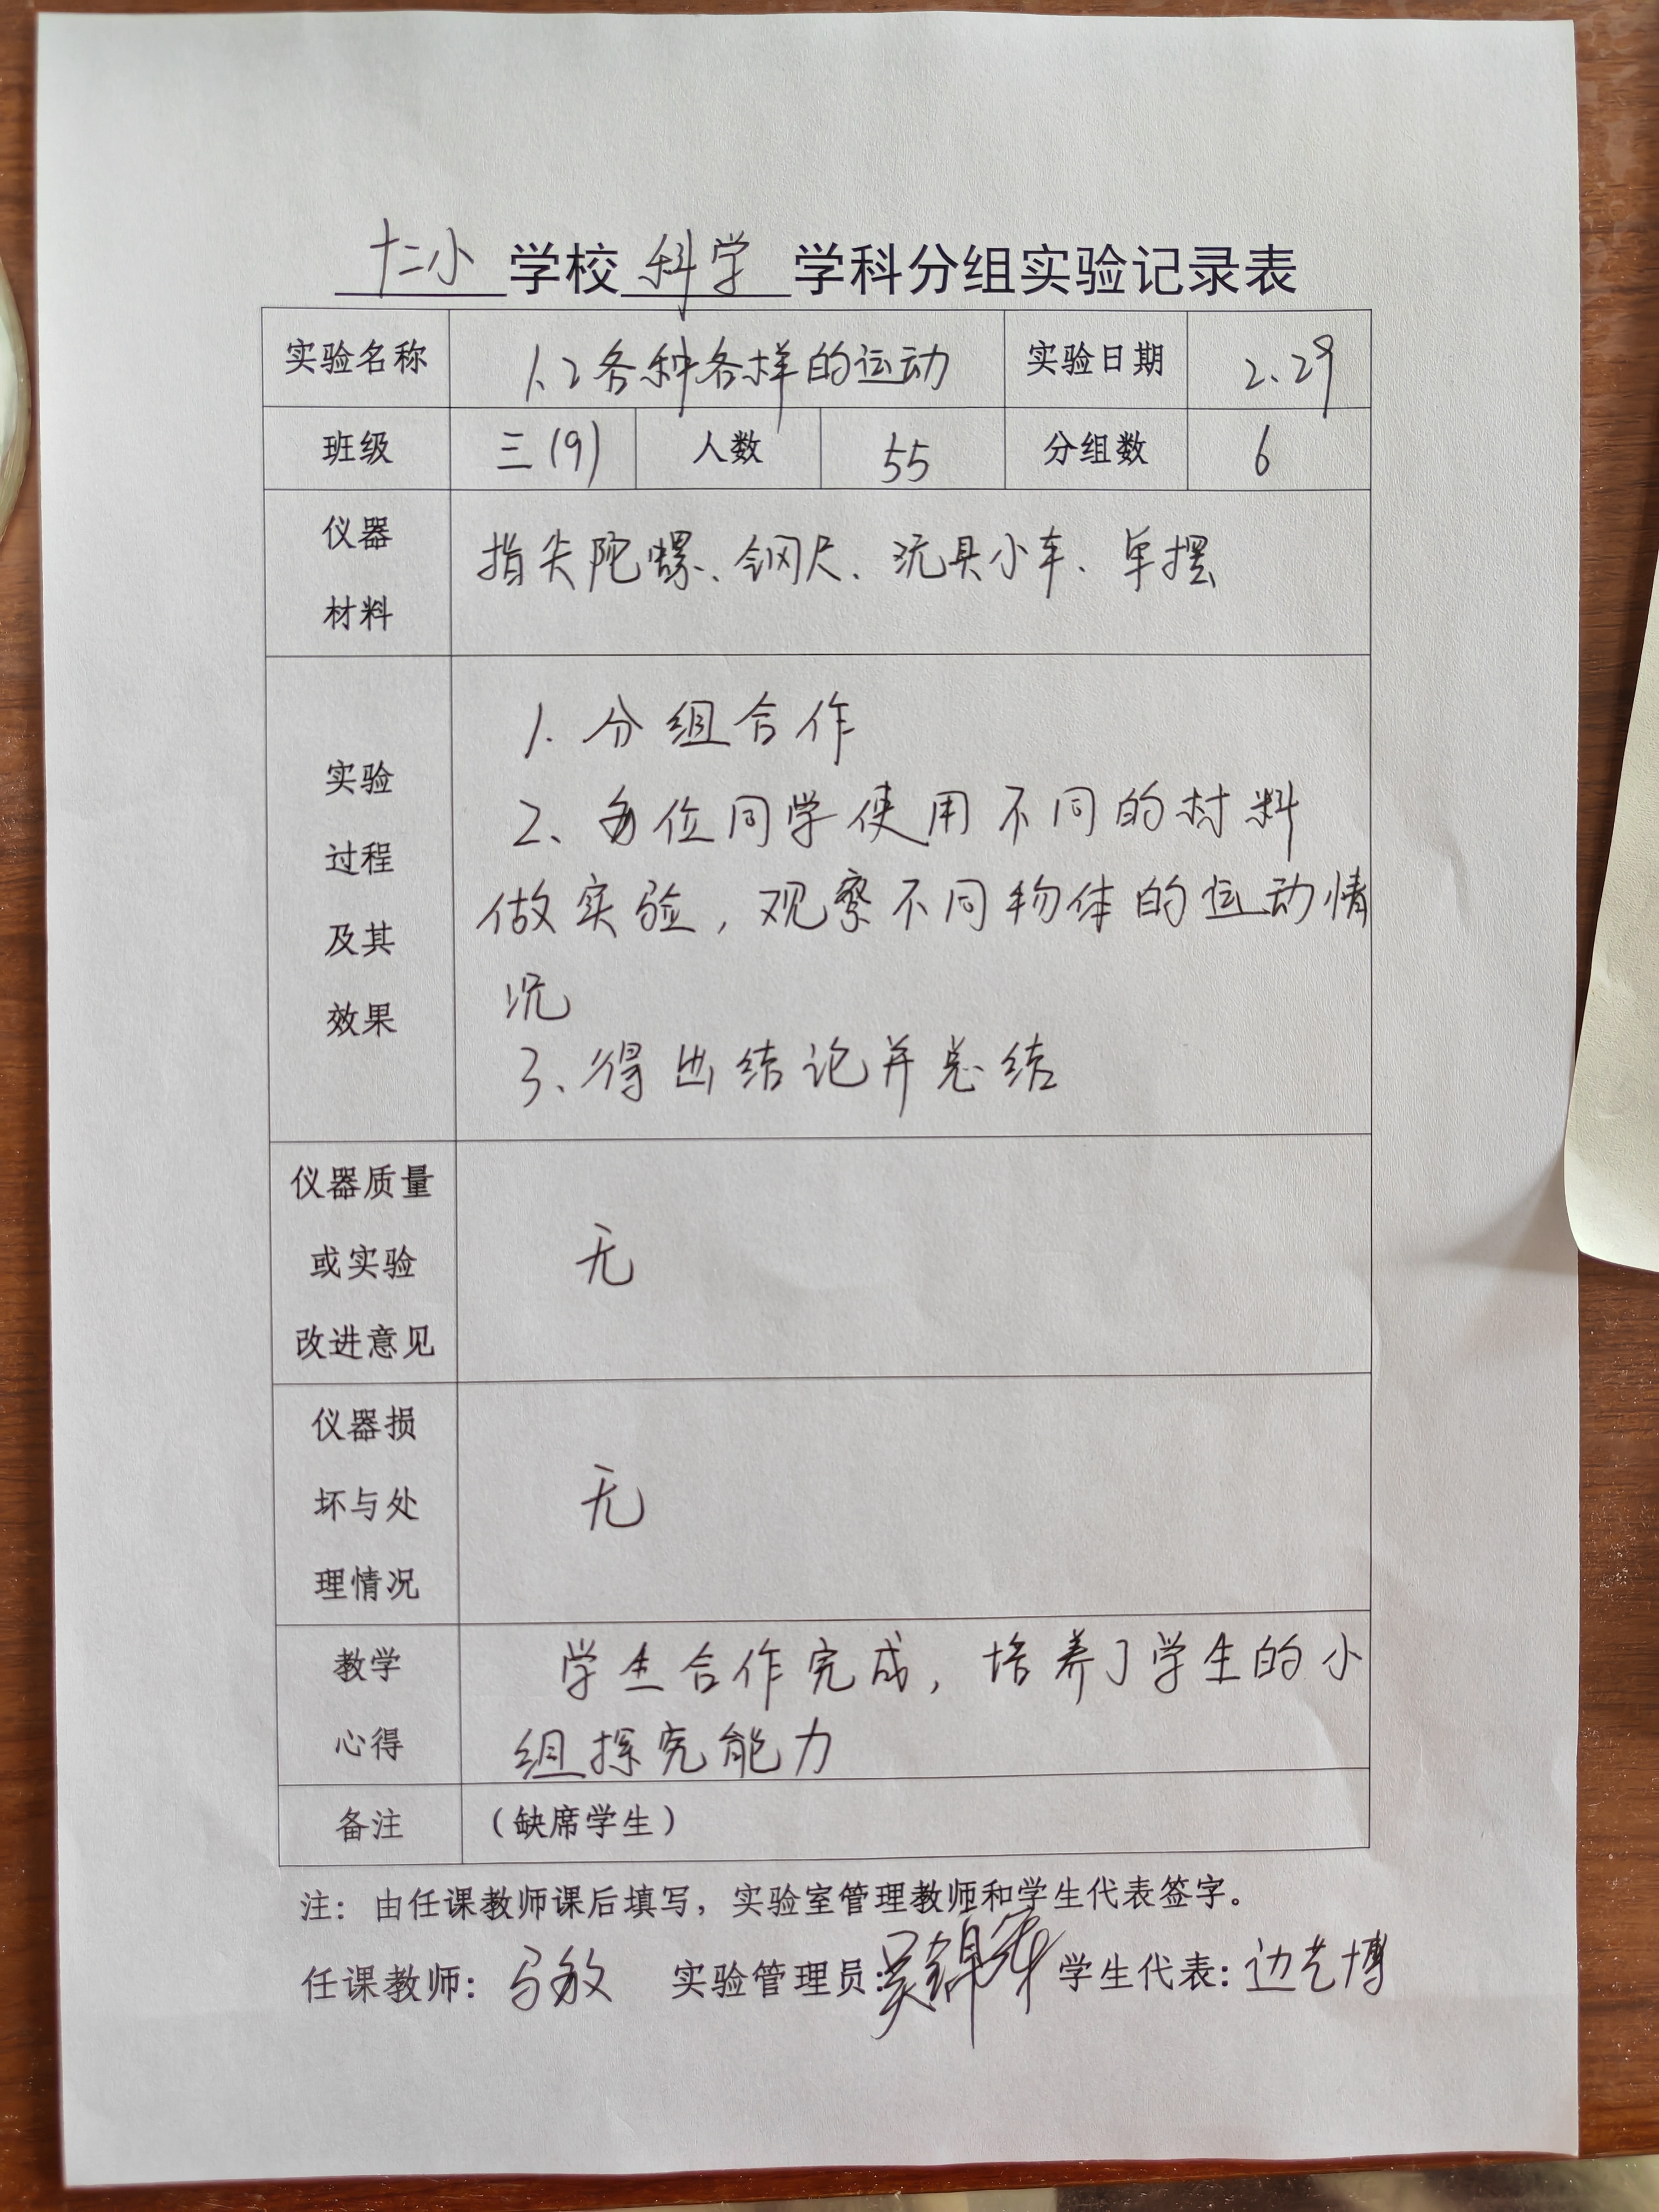 十二小 学校 科学 学科分组实验记录表
实验名称 1.2各种各样的运动 实验日期 2.29
班级 三(9) 人数 55 分组数 6
仪器
材料
指尖陀螺、钢尺、玩具小车、单摆
实验
过程
及其
效果
1. 分组合作
2、每位同学使用不同的材料
做实验，观察不同物体的运动情
况
3、得出结论并总结
仪器质量
或实验
改进意见
无
仪器损
坏与处
理情况
无
教学
心得
学生合作完成，培养了学生的小
组探究能力
备注 （缺席学生）
注：由任课教师课后填写，实验室管理教师和学生代表签字。
任课教师：马敏 实验管理员：吴锦华 学生代表：边艺博